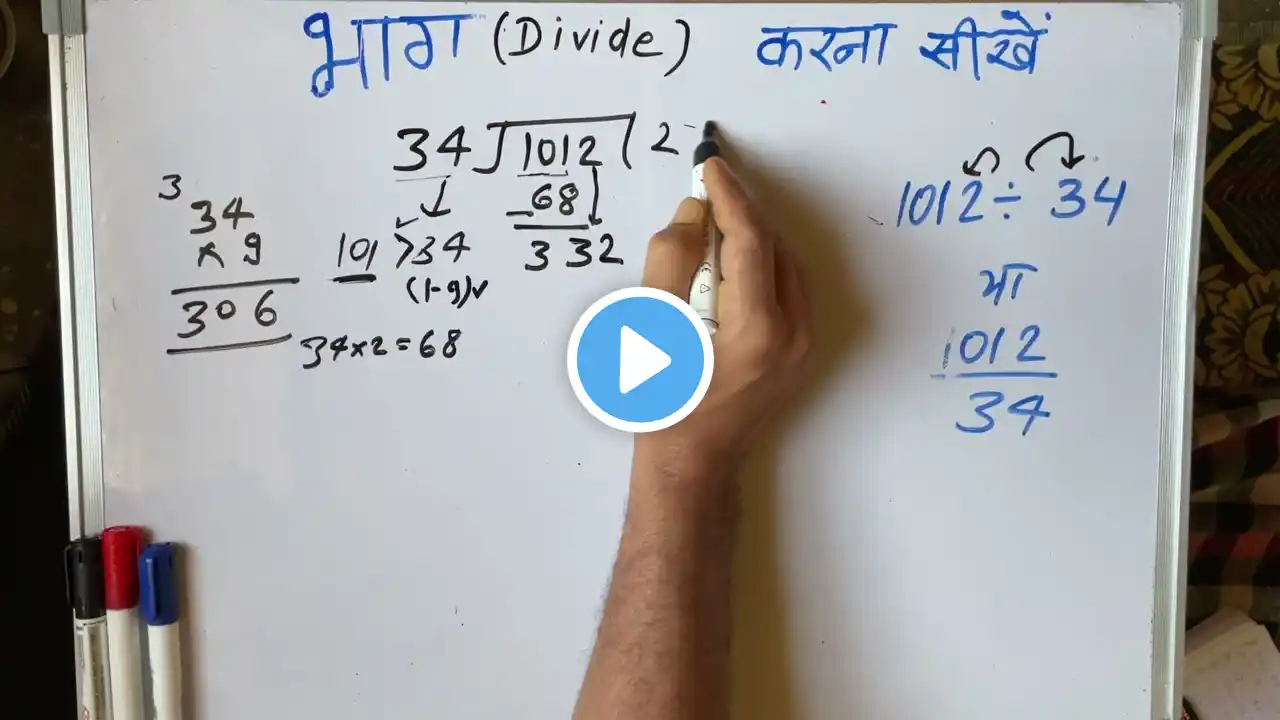 भाग (Divide) करना सीखें
34 ⟌ 1012 ( 2
68
332
3
34
× 9
306
101 > 34
(1-9)✓
34×2=68
1012 ÷ 34
या
1012
34